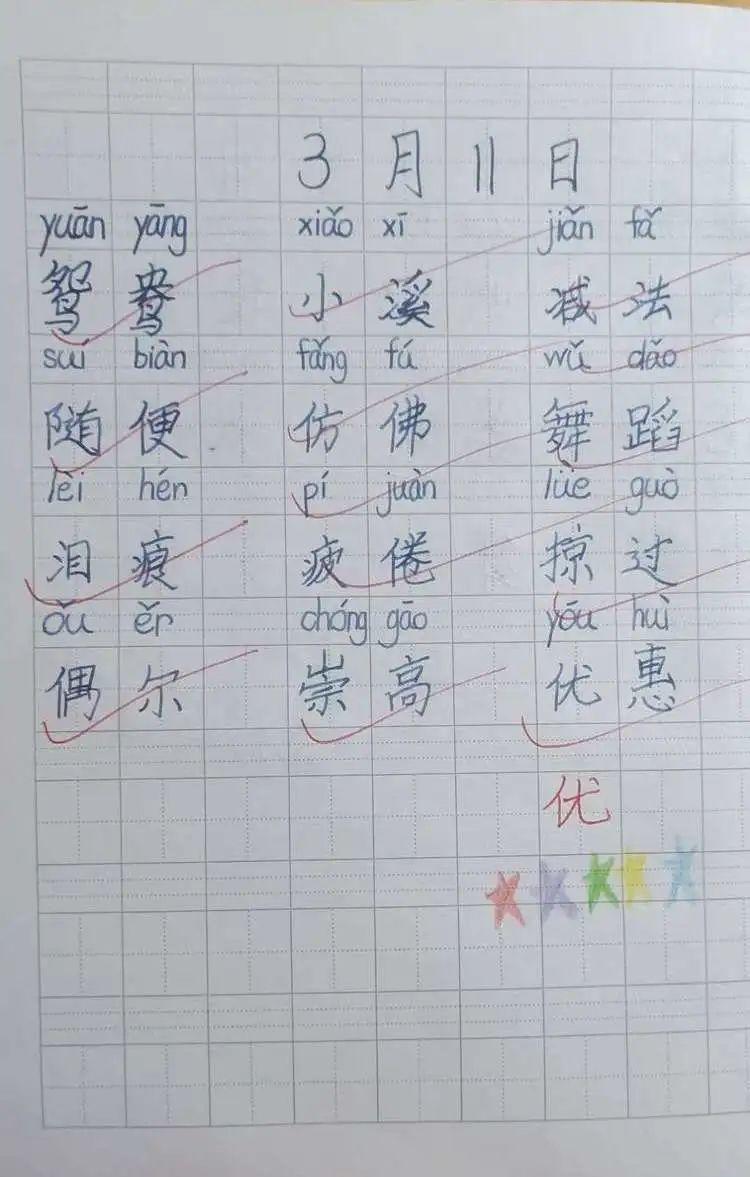 3月11日
yuān yāng xiǎo xī jiǎn fǎ
鸳鸯 小溪 减法
suí biàn fǎng fú wǔ dǎo
随便 仿佛 舞蹈
lèi hén pí juàn lüè guò
泪痕 疲倦 掠过
ǒu ěr chóng gāo yōu huì
偶尔 崇高 优惠
优